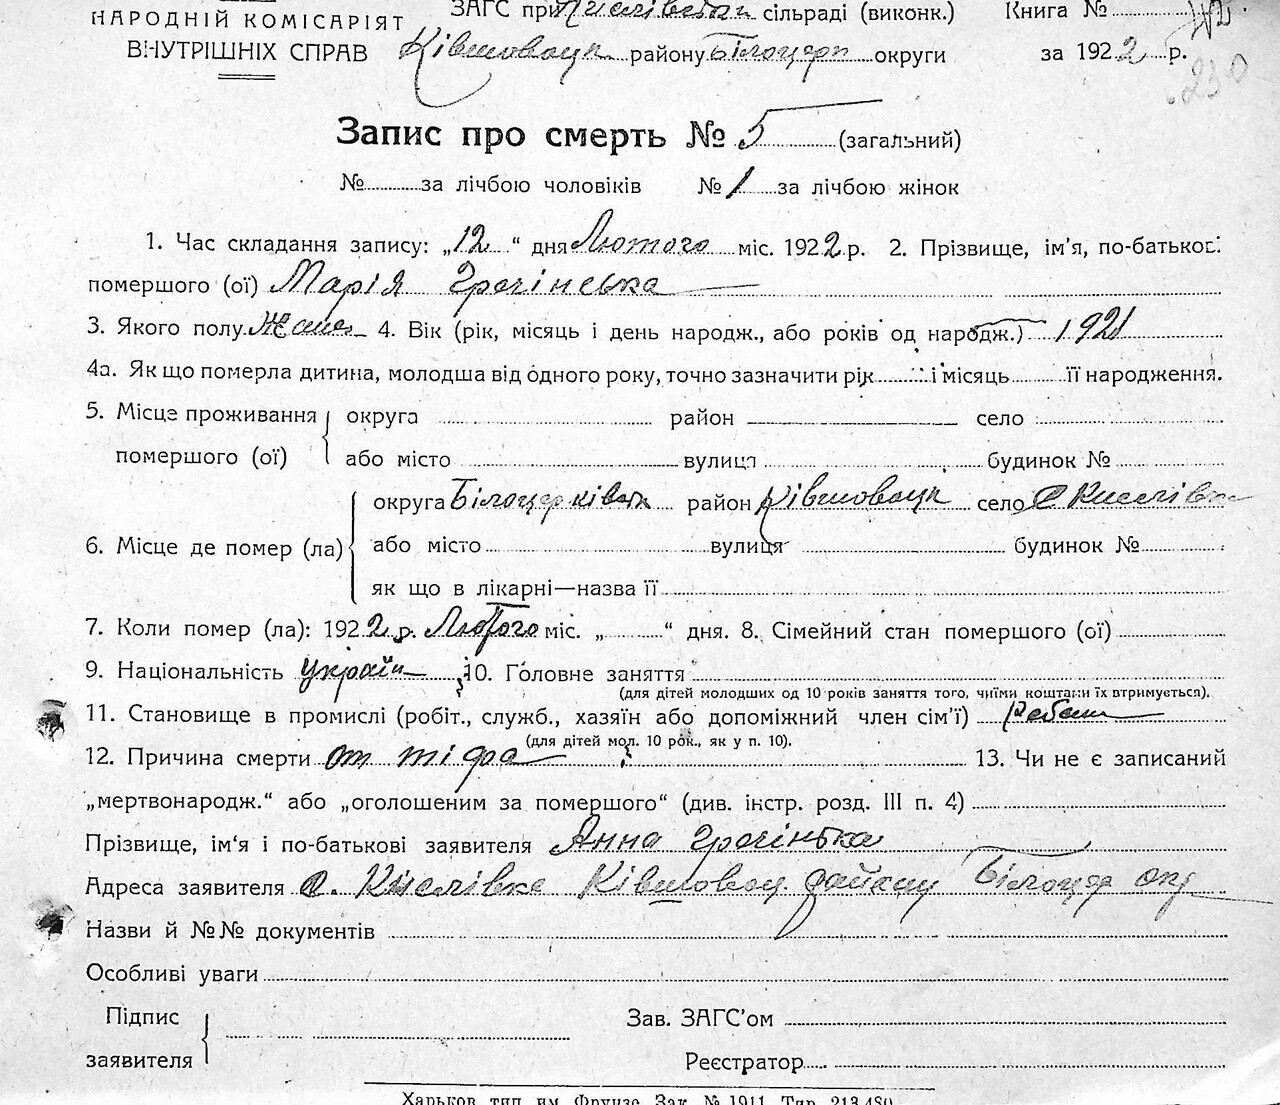 НАРОДНІЙ КОМІСАРІЯТ
ВНУТРІШНІХ СПРАВ
ЗАГС при Кислівськ сільраді (виконк.) Книга №
Ківшовацк району Білоцерк округи за 1922 р.
230
Запис про смерть № 5 (загальний)
№ за лічбою чоловіків № 1 за лічбою жінок
1. Час складання запису: „12“ дня Лютого міс. 1922 р. 2. Прізвище, ім'я, по-батькові
помершого (ої) Марія Гречінська
3. Якого полу Жіноч 4. Вік (рік, місяць і день народж., або років од народж.) 1921
4а. Як що померла дитина, молодша від одного року, точно зазначити рік і місяць її народження.
5. Місце проживання
помершого (ої)
округа район село
або місто вулиця будинок №
6. Місце де помер (ла)
округа Білоцерківськ район Ківшовацк село с Кислівка
або місто вулиця будинок №
як що в лікарні—назва її
7. Коли помер (ла): 1922 р. Лютого міс. „ “ дня. 8. Сімейний стан помершого (ої)
9. Національність україн 10. Головне заняття
(для дітей молодших од 10 років заняття того, чиїми коштами їх втримується).
11. Становище в промислі (робіт., служб., хазяїн або допоміжний член сім'ї)
(для дітей мол. 10 рок., як у п. 10).
12. Причина смерти от тіфа 13. Чи не є записаний
„мертвонародж.“ або „оголошеним за помершого“ (див. інстр. розд. III п. 4)
Прізвище, ім'я і по-батькові заявителя Анна Гречінська
Адреса заявителя с. Кислівка Ківшовац. району Білоцер окр
Назви й №№ документів
Особливі уваги
Підпис
заявителя
Зав. ЗАГС'ом
Реєстратор
Харьков тип. им. Фрунзе Зак. № 1911. Тир. 213.450